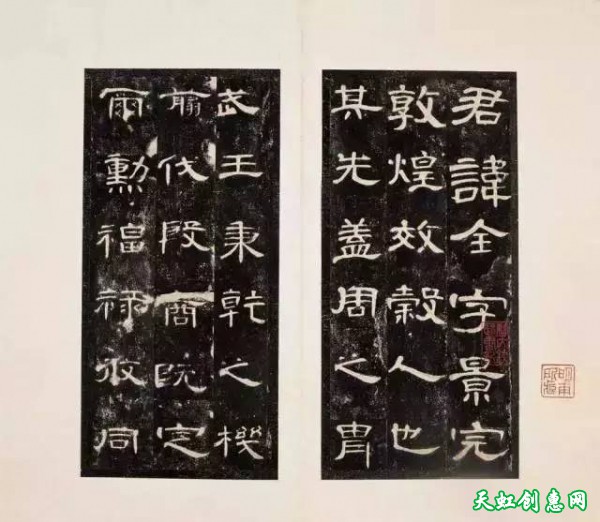 君諱全字景完
敦煌效穀人也
其先蓋周之冑
武王秉乾之機
翦伐殷商既定
爾勳福祿攸同
天虹创惠网